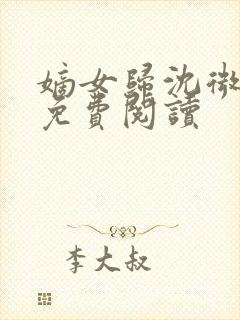 嫡女歸沈微
免費閱讀
李大叔